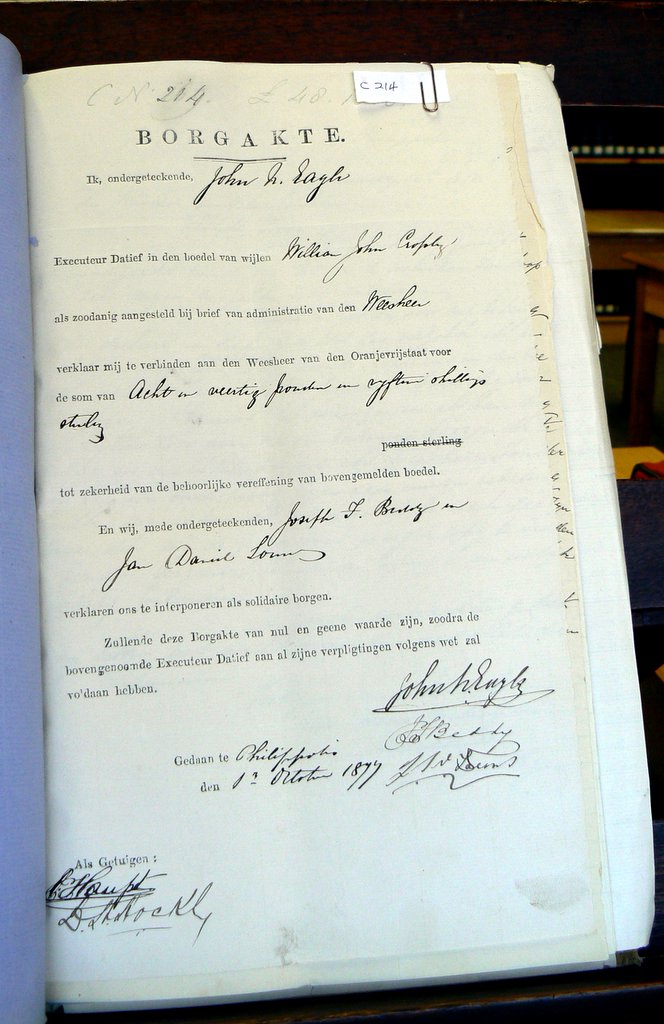 C No 214. £ 48.
C 214
BORGAKTE.
Ik, ondergeteekende, John N. Eagle
Executeur Datief in den boedel van wijlen William John Cropley
als zoodanig aangesteld bij brief van administratie van den Weesheer
verklaar mij te verbinden aan den Weesheer van den Oranjevrijstaat voor
de som van Acht en veertig ponden en vyftien shillings
sterling
ponden sterling
tot zekerheid van de behoorlijke vereffening van bovengemelden boedel.
En wij, mede ondergeteekenden, Joseph F. en
Jan Daniel
verklaren ons te interponeren als solidaire borgen.
Zullende deze Borgakte van nul en geene waarde zijn, zoodra de
bovengenoemde Executeur Datief aan al zijne verpligtingen volgens wet zal
vo'daan hebben.
John N Eagle
Beddy
Gedaan te Philippolis
den 1n October 1877
Als Getuigen:
C Haupt